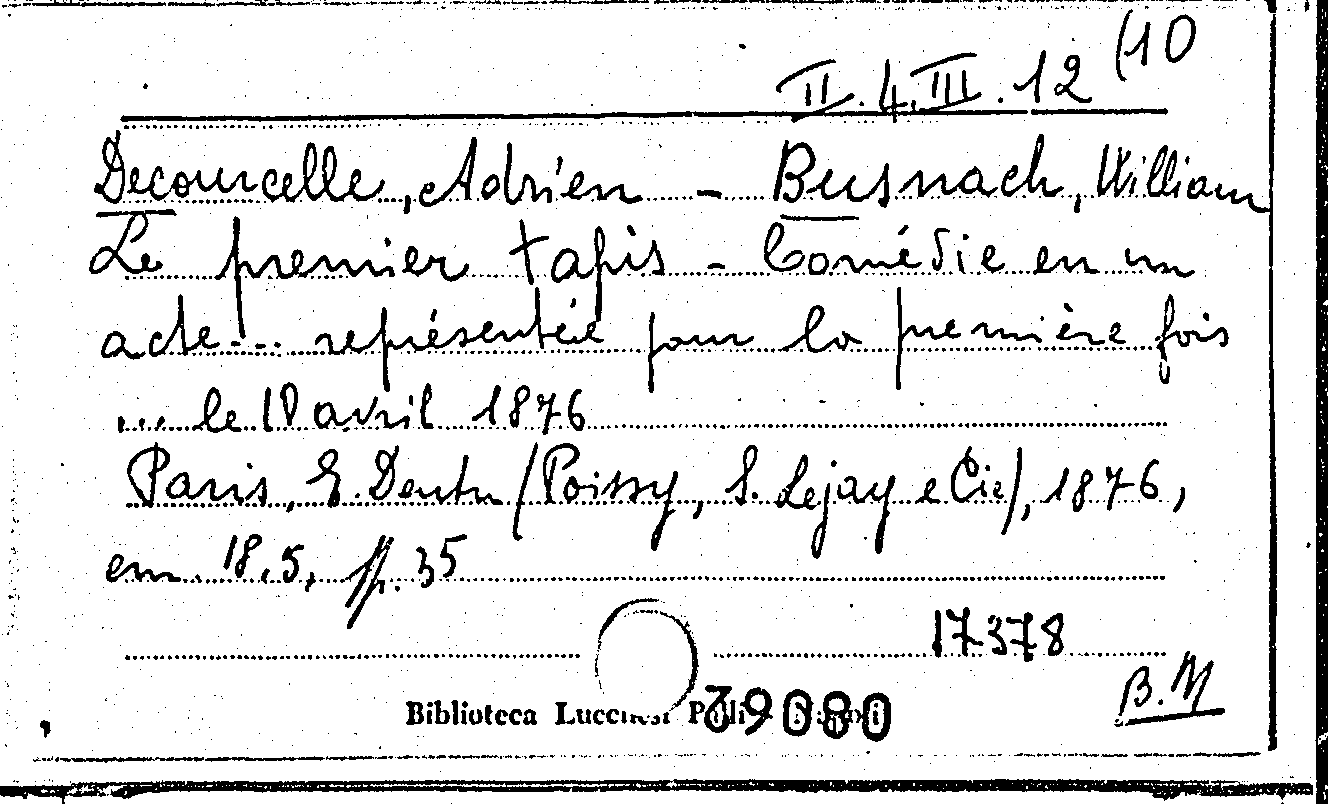 II.4.III.12 (10
Decourcelle, Adrien - Busnach, William
Le premier tapis - Comédie en un
acte... représentée pour la première fois
... le 10 avril 1876
Paris, E. Dentu (Poissy, S. Lejay e Cie), 1876,
cm. 18,5, pp. 35
17378
Biblioteca Lucchesi Palli - Napoli
39080
B.M